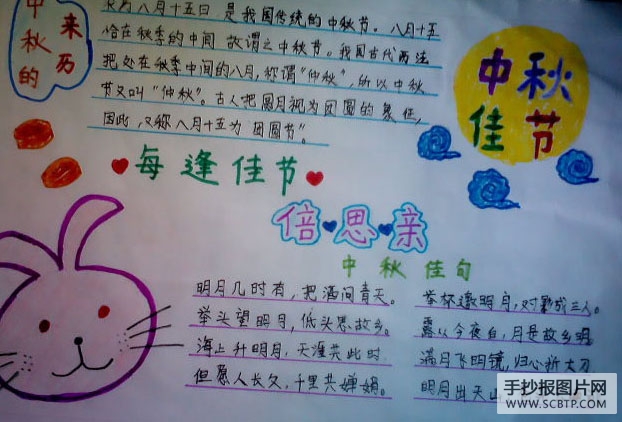 中秋的
来历
农历八月十五日 是我国传统的中秋节。八月十五
恰在秋季的中间 故谓之中秋节。我国古代历法
把处在秋季中间的八月，称谓“仲秋”，所以中秋
节又叫“仲秋”。古人把圆月视为团圆的象征，
因此，又称八月十五为 团圆节”。
中秋
佳节
每逢佳节
倍思亲
中秋佳句
明月几时有，把酒问青天。
举头望明月，低头思故乡。
海上升明月，天涯共此时
但愿人长久，千里共婵娟。
举杯邀明月，对影成三人。
露从今夜白，月是故乡明
满月飞明镜，归心折大刀
明月出天山
手抄报图片网
WWW.SCBTP.COM